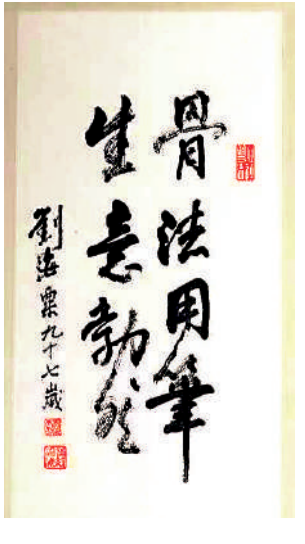 骨法用筆
生意勃然
劉海粟九十七歲